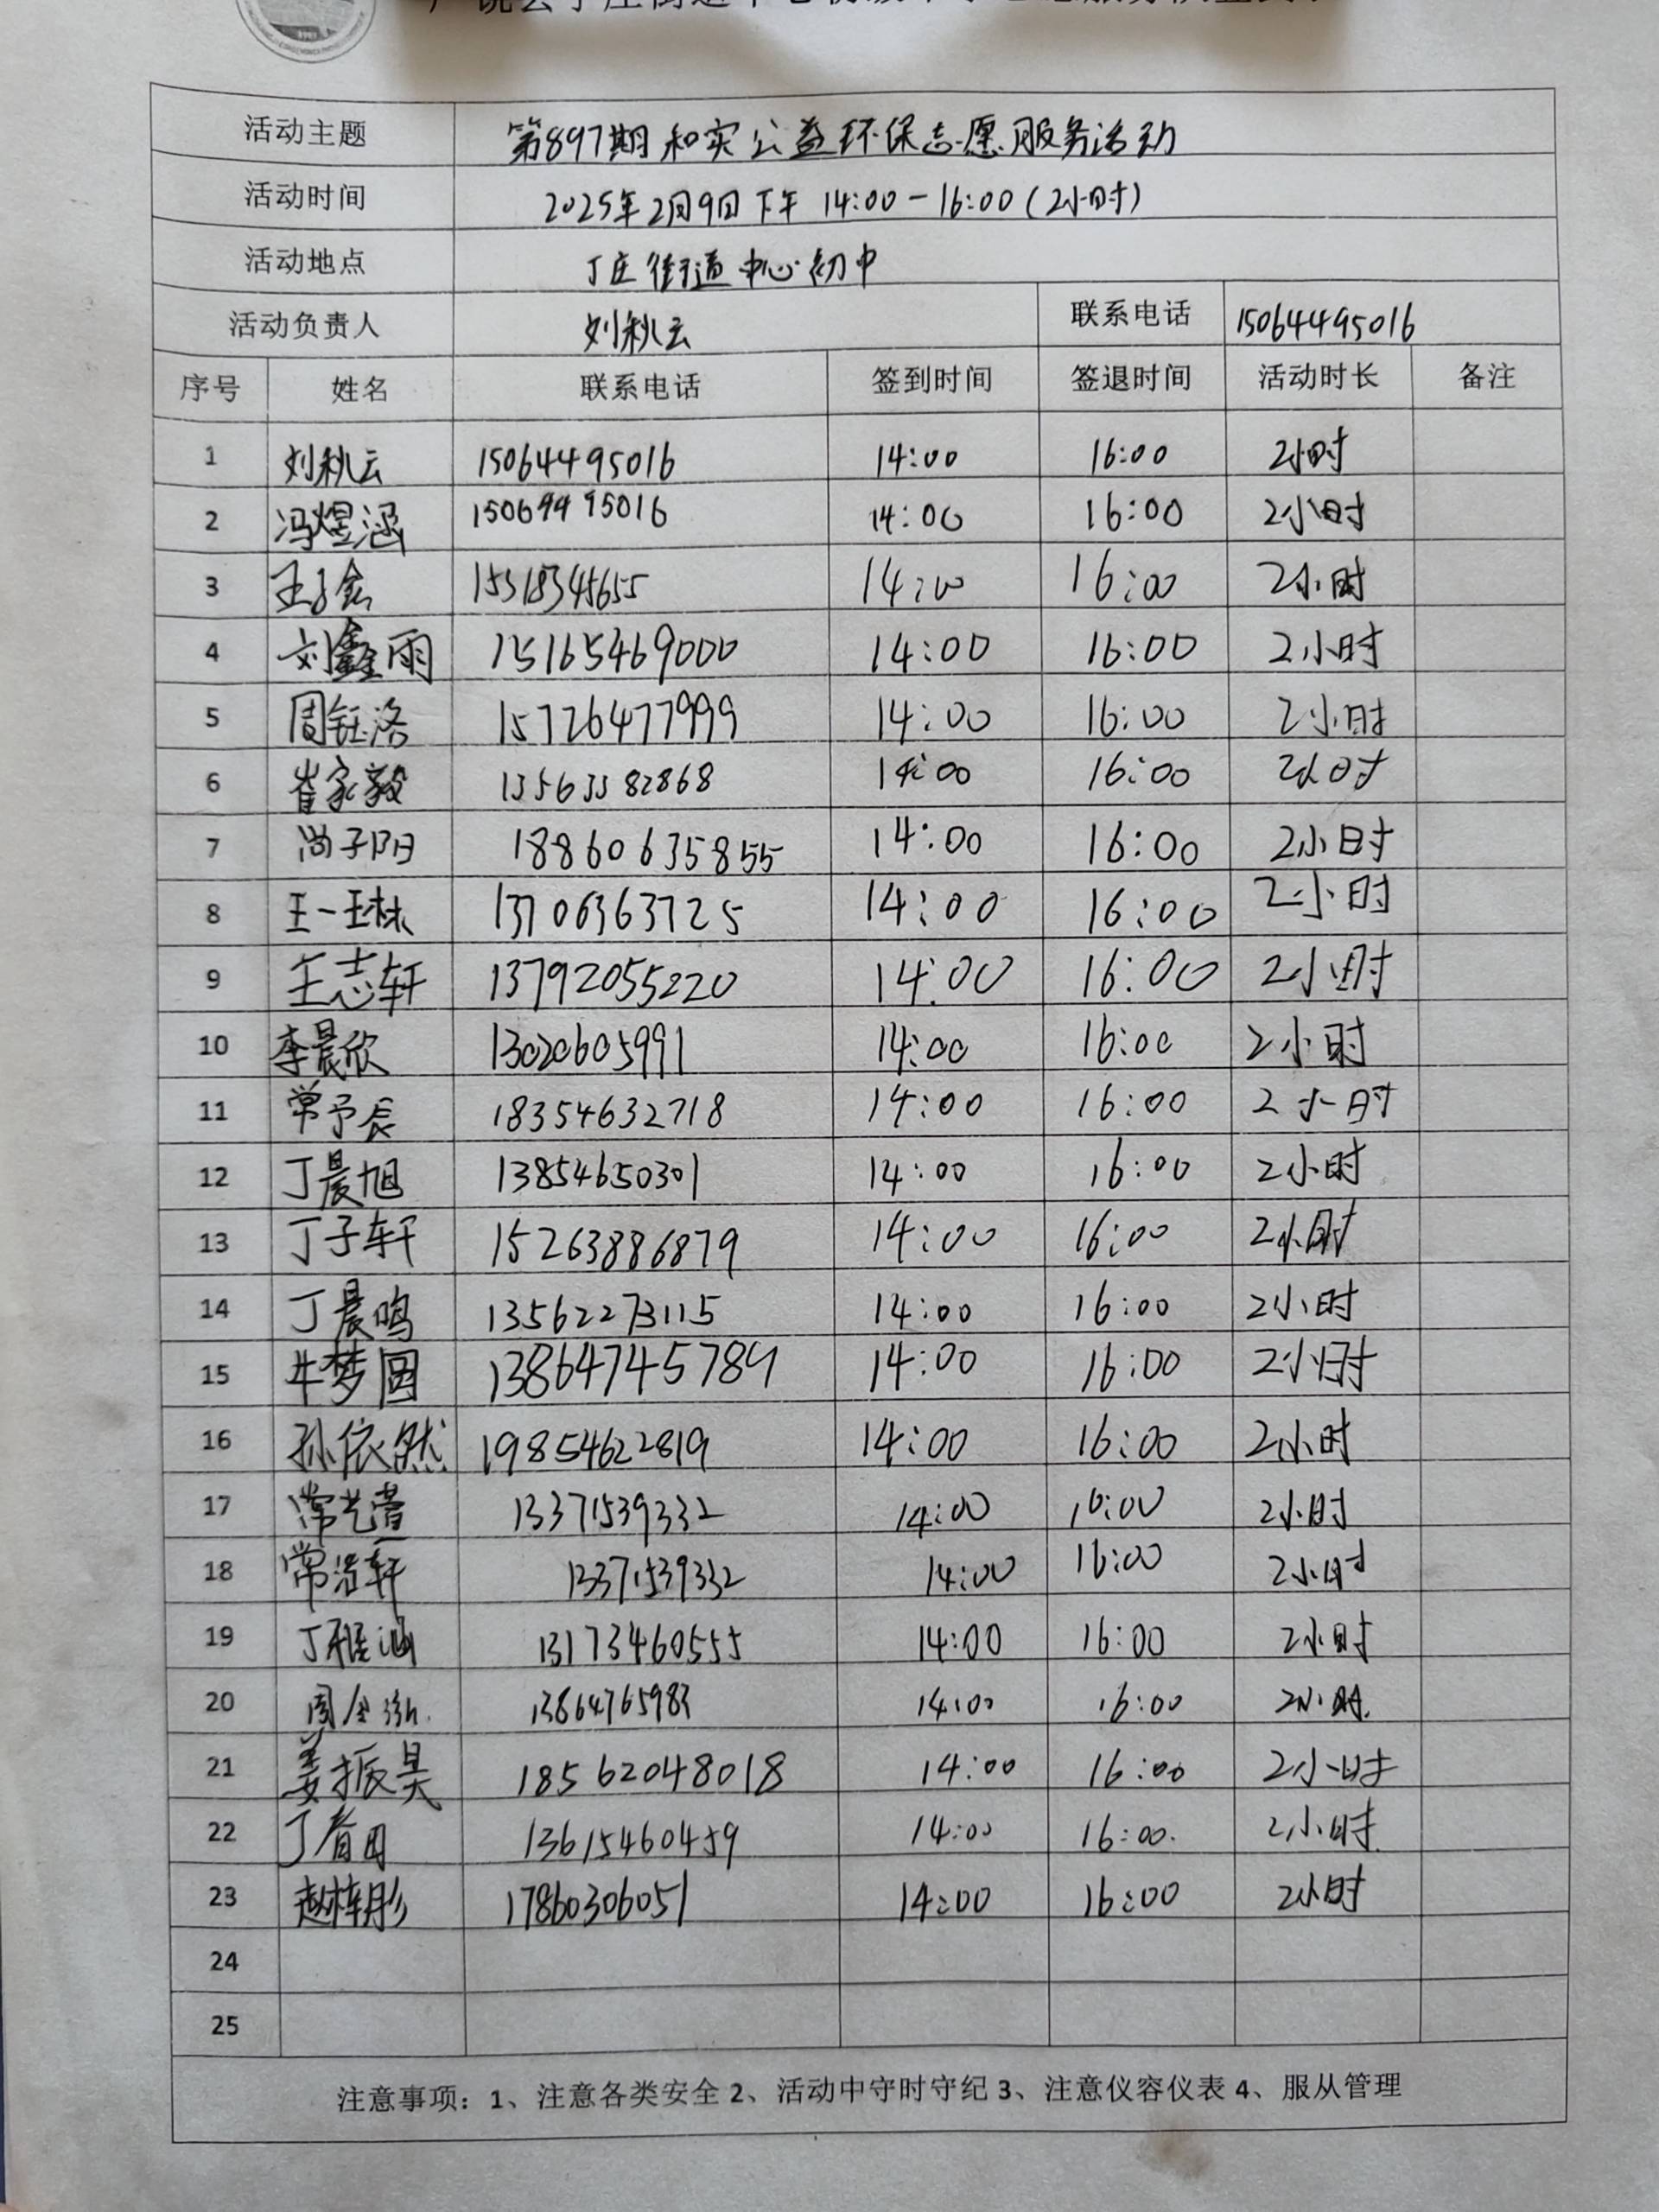 活动主题 第897期和实公益环保志愿服务活动
活动时间 2025年2月9日下午 14:00-16:00(2小时)
活动地点 丁庄街道中心初中
活动负责人 刘秋云 联系电话 15064495016
序号 姓名 联系电话 签到时间 签退时间 活动时长 备注
1 刘秋云 15064495016 14:00 16:00 2小时
2 冯煜涵 15064495016 14:00 16:00 2小时
3 王子会 15318345655 14:00 16:00 2小时
4 刘鑫雨 15165469000 14:00 16:00 2小时
5 周钰洛 15726477999 14:00 16:00 2小时
6 崔家毅 13563382868 14:00 16:00 2小时
7 尚子阳 18860635855 14:00 16:00 2小时
8 王一琳 13706363725 14:00 16:00 2小时
9 王志轩 13792055220 14:00 16:00 2小时
10 李晨欣 13020605991 14:00 16:00 2小时
11 常予辰 18354632718 14:00 16:00 2小时
12 丁晨旭 13854650301 14:00 16:00 2小时
13 丁子轩 15263886879 14:00 16:00 2小时
14 丁晨鸣 13562273115 14:00 16:00 2小时
15 牛梦圆 13864745789 14:00 16:00 2小时
16 孙依然 19854622819 14:00 16:00 2小时
17 常艺萱 13371539332 14:00 16:00 2小时
18 常浩轩 13371539332 14:00 16:00 2小时
19 丁雅涵 13173460555 14:00 16:00 2小时
20 13864765983 14:00 16:00 2小时
21 姜振昊 18562048018 14:00 16:00 2小时
22 13615460459 14:00 16:00 2小时
23 赵梓彤 17860306051 14:00 16:00 2小时
24
25
注意事项：1、注意各类安全 2、活动中守时守纪 3、注意仪容仪表 4、服从管理